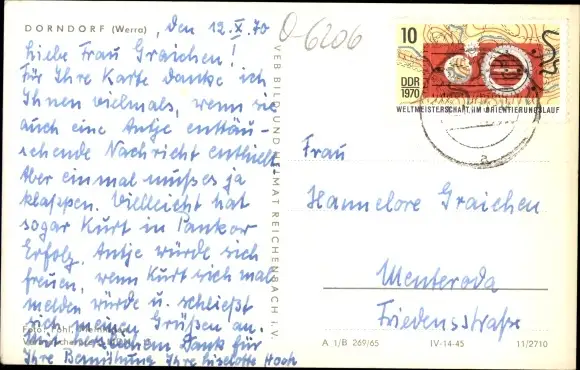 DORNDORF (Werra)
, den 12. X. 70
Liebe Frau Graichen!
Für Ihre Karte danke ich
Ihnen vielmals, wenn sie
auch eine Antje enttäu-
schende Nachricht enthielt.
Aber einmal muß es ja
klappen. Vielleicht hat
sogar Kurt in Pankow
Erfolg. Antje würde sich
freuen, wenn Kurt sich mal
melden würde u. schließt
sich meinen Grüßen an.
Mit herzlichem Dank für
Ihre Bemühung Ihre Liselotte Hoch
Foto: Pohl,
O-6206
VEB BILD UND HEIMAT REICHENBACH i. V.
10
DDR
1970
WELTMEISTERSCHAFT IM ORIENTIERUNGSLAUF
a
Frau
Hannelore Graichen
Menteroda
Friedensstraße
A 1/B 269/65 IV-14-45 11/2710